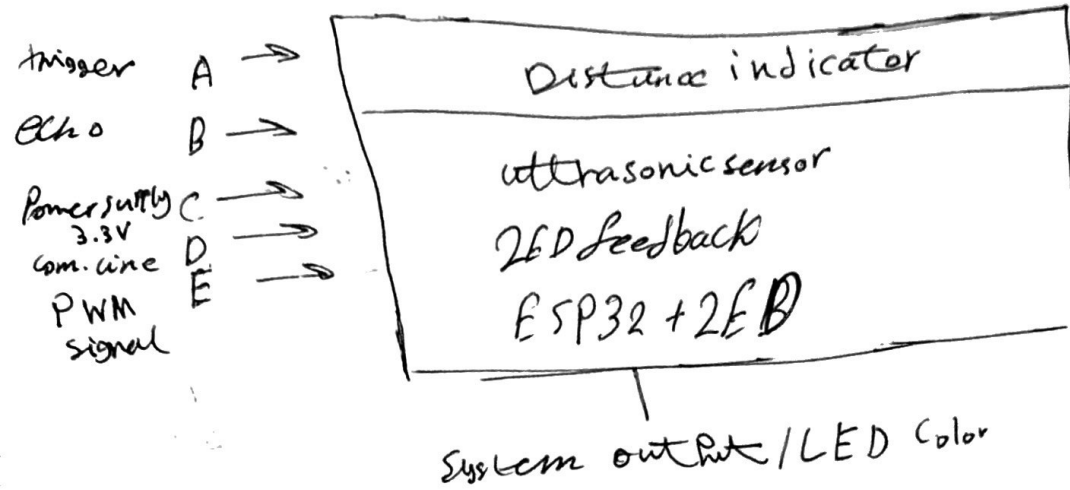 trigger A
echo B
Power supply C
3.3V
com. line D
PWM E
signal
Distance indicator
ultrasonic sensor
LED feedback
ESP32 + LED
System output / LED Color